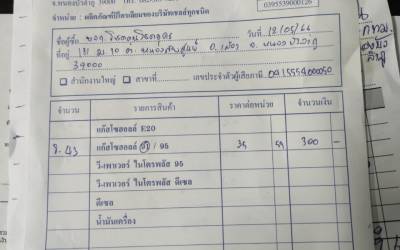 จ.หนองบัวลำภู 39000
0395539000126
จำหน่าย : ผลิตภัณฑ์ปิโตรเลียมของบริษัทเชลล์ทุกชนิด
ชื่อผู้ซื้อ วันที่ 18/05/66
ที่อยู่ 181 ม 10 ต. หนองบัว อ. เมือง จ. หนองบัวลำภู
39000
สำนักงานใหญ่ สาขาที่ เลขประจำตัวผู้เสียภาษี
จำนวน รายการสินค้า ราคาต่อหน่วย จำนวนเงิน
แก๊สโซฮอลล์ E20
8.43 แก๊สโซฮอลล์ 91 / 95 35 59 300 -
วี-เพาเวอร์ ไนโตรพลัส 95
วี-เพาเวอร์ ไนโตรพลัส ดีเซล
ดีเซล
น้ำมันเครื่อง